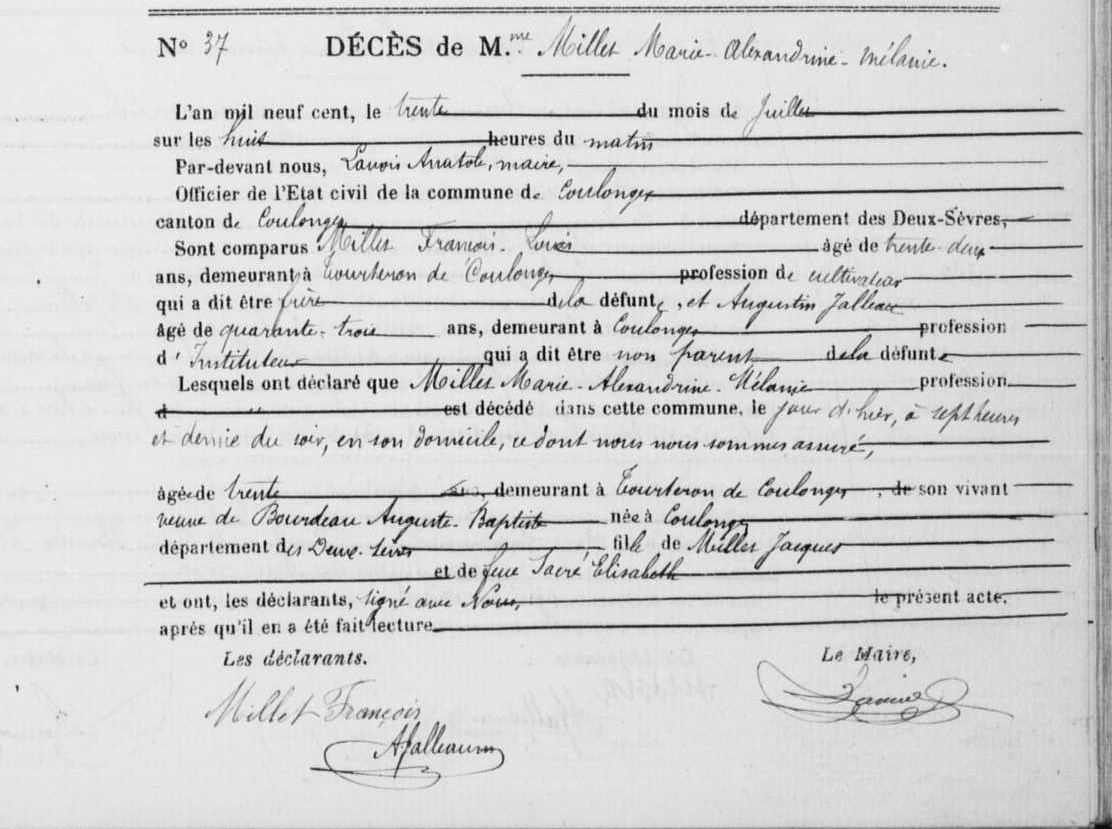 N° 37 DÉCÈS de M.me Millet Marie-Alexandrine-Mélanie.
L'an mil neuf cent, le trente du mois de Juillet
sur les huit heures du matin
Par-devant nous, Lavois Anatole, maire,
Officier de l'Etat civil de la commune de Coulonges
canton de Coulonges département des Deux-Sèvres,
Sont comparus Millet François-Louis âgé de trente-deux
ans, demeurant à Tourteron de Coulonges profession de cultivateur
qui a dit être frère de la défunte, et Augustin Jalleau
âgé de quarante-trois ans, demeurant à Coulonges profession
d'Instituteur qui a dit être non parent de la défunte
Lesquels ont déclaré que Millet Marie-Alexandrine-Mélanie profession
d " est décédé dans cette commune, le jour d'hier, à sept heures
et demie du soir, en son domicile, ce dont nous nous sommes assuré,
âgée de trente ans, demeurant à Tourteron de Coulonges, de son vivant
veuve de Bourdeau Auguste-Baptiste née à Coulonges
département des Deux-Sèvres fille de Millet Jacques
et de feue Sacré Elisabeth
et ont, les déclarants, signé avec Nous, le présent acte.
après qu'il en a été fait lecture
Les déclarants. Le Maire,
Millet François
AJalleau